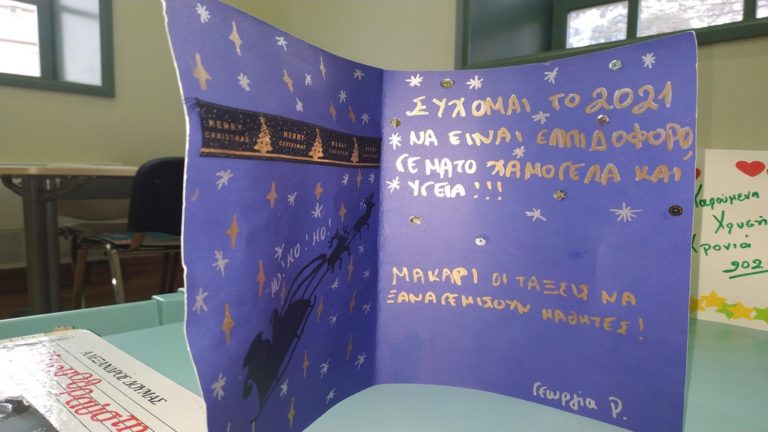 MERRY CHRISTMAS
MERRY CHRISTMAS
MERRY CHRISTMAS
HO! HO! HO!
ΕΥΧΟΜΑΙ ΤΟ 2021
ΝΑ ΕΙΝΑΙ ΕΛΠΙΔΟΦΟΡΟ,
ΓΕΜΑΤΟ ΧΑΜΟΓΕΛΑ ΚΑΙ
ΥΓΕΙΑ!!!
ΜΑΚΑΡΙ ΟΙ ΤΑΞΕΙΣ ΝΑ
ΞΑΝΑΓΕΜΙΣΟΥΝ ΜΑΘΗΤΕΣ!
Γεωργία Ρ.
Χαρούμενη
Χρόνια
ΑΛΕΞΑΝΔΡΟΣ ΔΟΥΜΑΣ